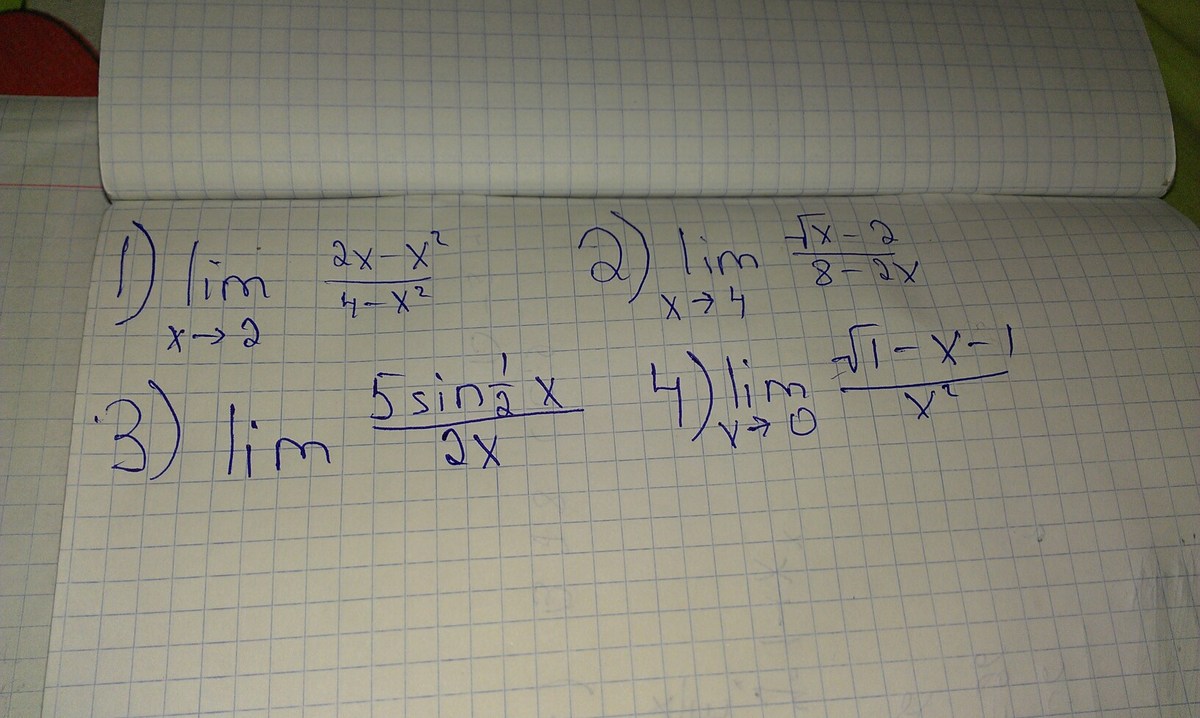 1) lim x→2 (2x-x²)/(4-x²)
2) lim x→4 (√x-2)/(8-2x)
3) lim (5 sin ½ x)/(2x)
4) lim x→0 (√1-x-1)/(x²)